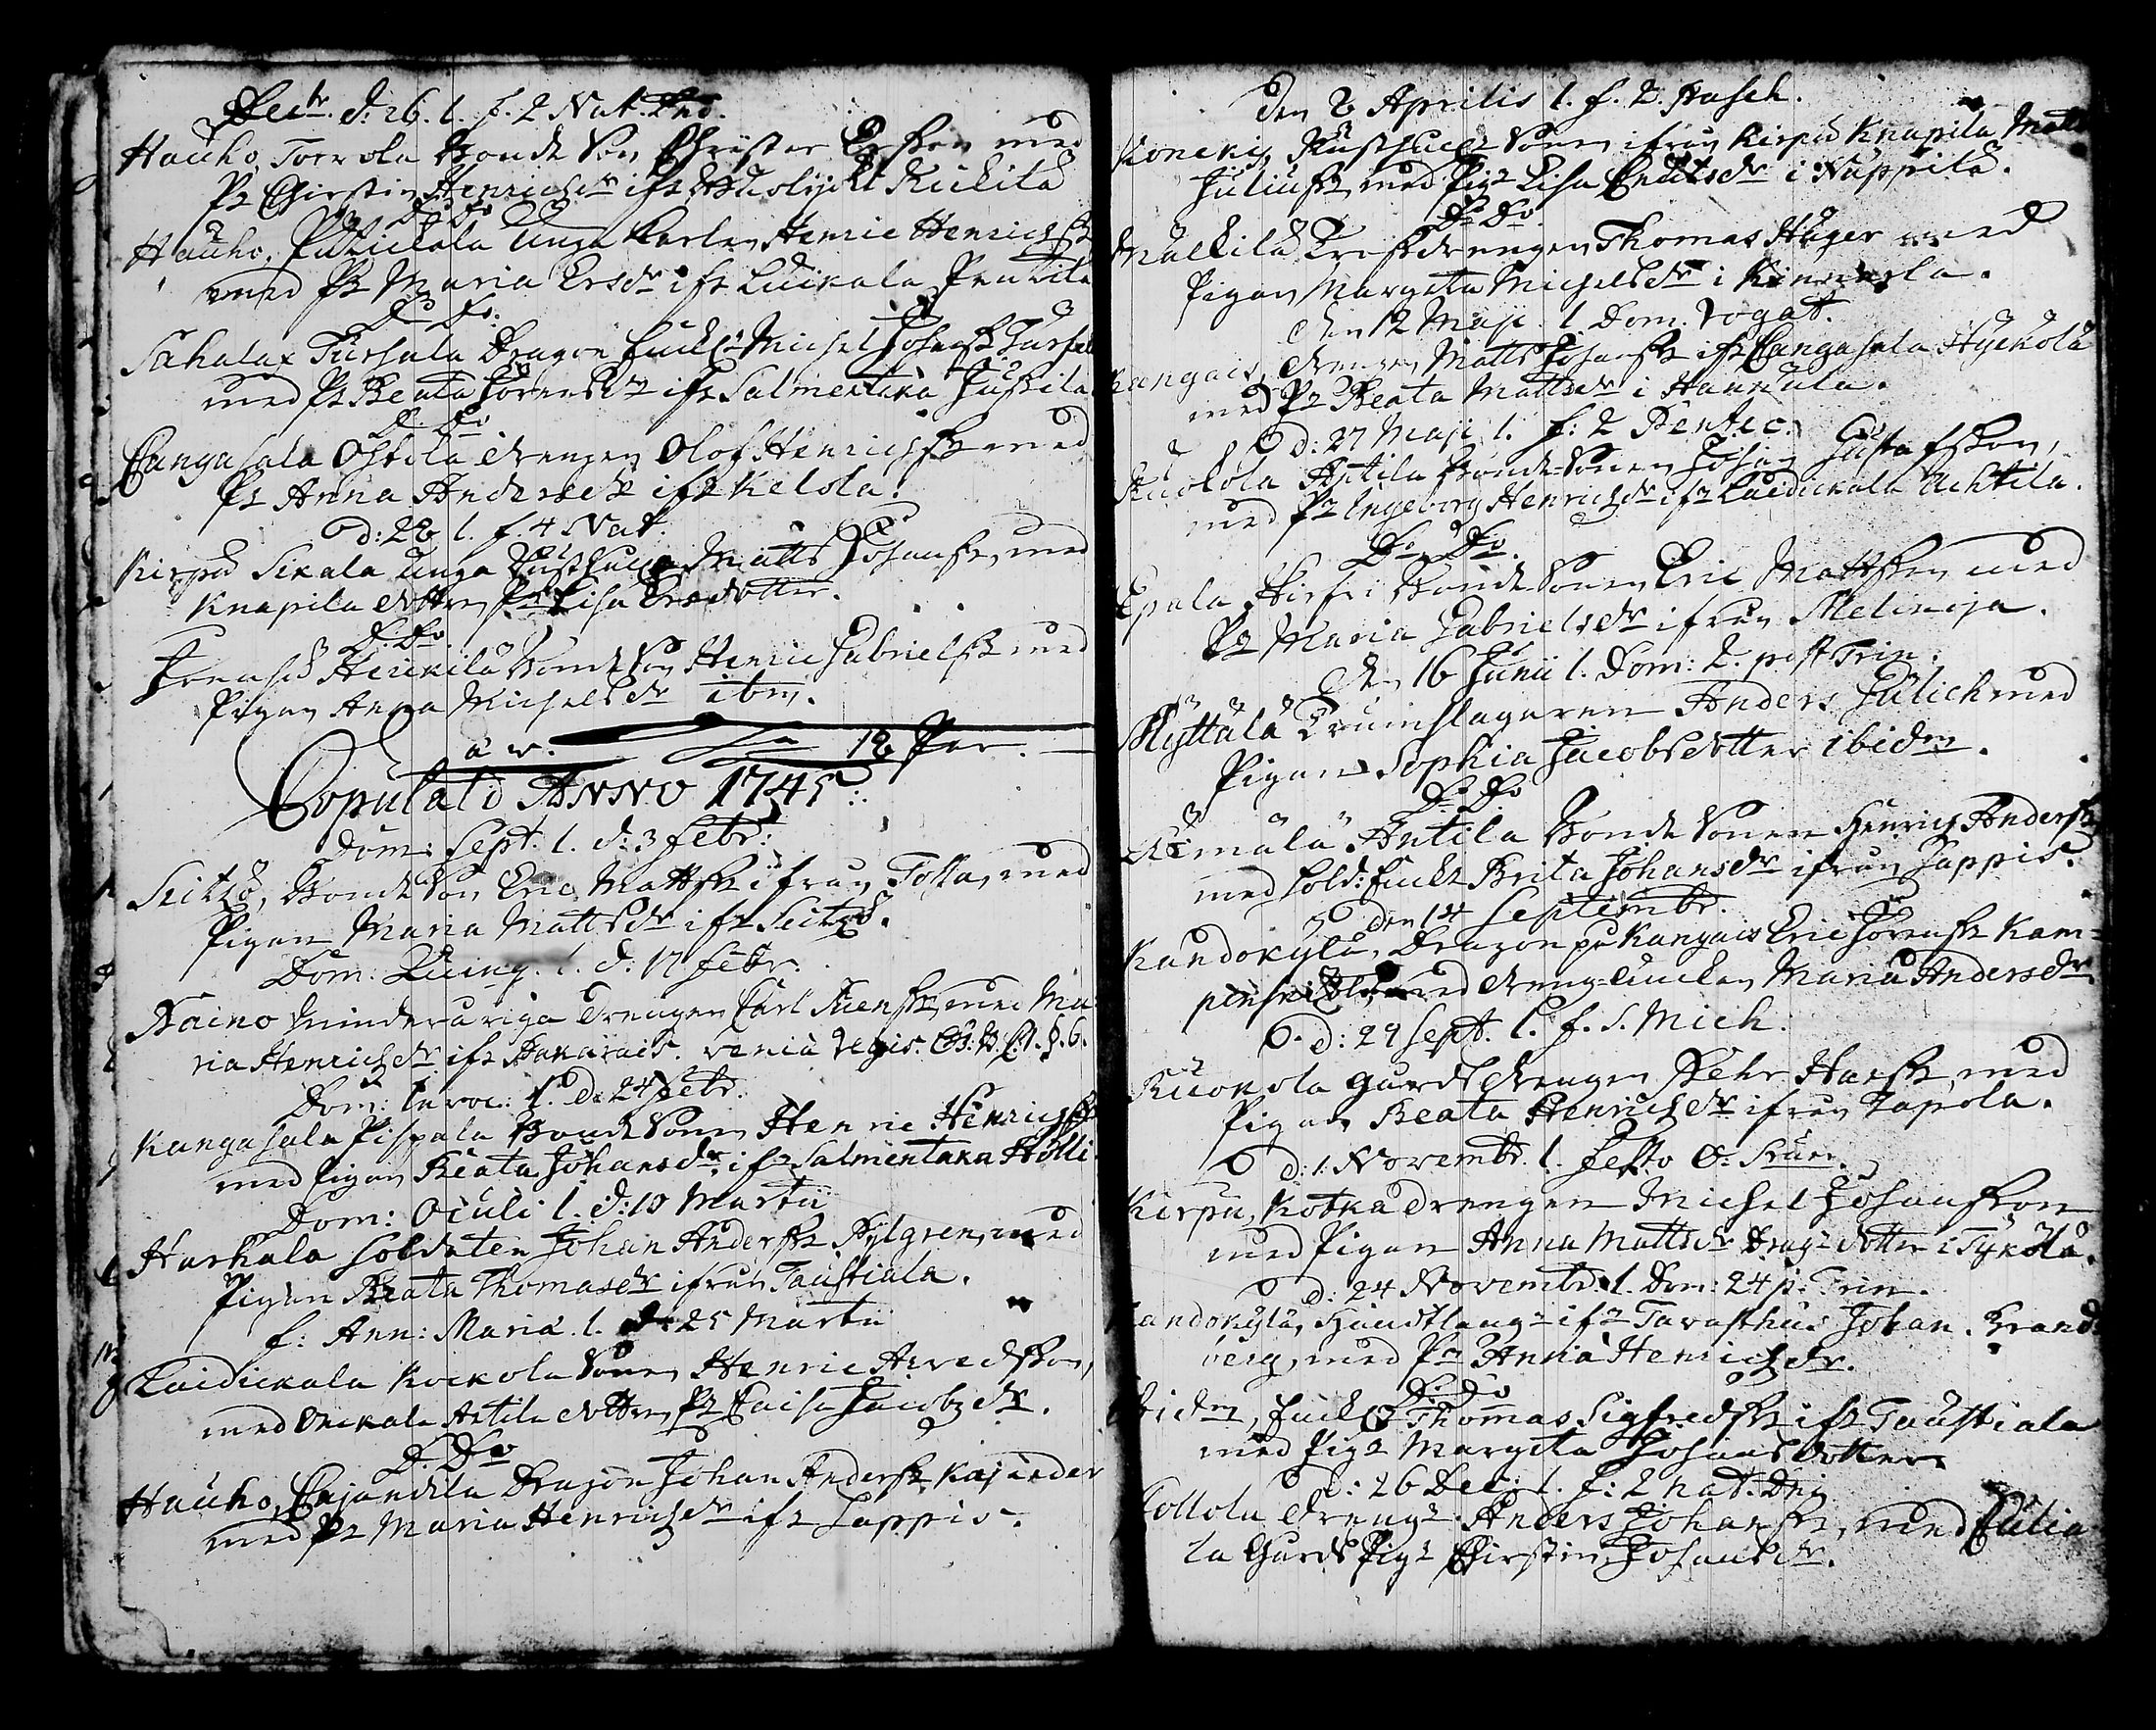 Decbr. d: 26. l. f. 2 Nat. Dni.
Hauho, Torrola Bonde Son Christer Ersson med
Pig Chirstin Henrichsdr ifr Kuckila
Do Do
Hauho, unga Karlen Henric Henrichss
med Pig Maria Ersdr ifr Luickala Penttila
Do Do:
Sahalax Tursala Dragon Enckl: Michel Johanss Tursal
med Pig Beata Görensdr ifr Salmentaka Jussila
D. Do
Cangasala Ohtila drengen Olof Henrichss med
Pig Anna Andersdr ifr Kelola.
d: 28 l. f. 4 Nat.
Kirpu Sekala unga Rusthåll. Matts Johanss, med
Knapila dottren Pig Lisa Ersdotter.
D. Do.
Heickilä bonde Son Henric Gabrielss med
Pigan Anna Michelsdr ibm.
a w. 18 Par.
Copulati ANNO 1745.
Dom: Sept. l. d: 3 Febr:
Seitzö, Bonde Son Eric Mattss ifrån Tolja, med
Pigan Maria Mattsdr ifr Seitzö.
Dom: Quinq. l. d: 17 Febr.
Naino minderåriga drengen Carl Svenss, med Ma-
ria Henrichsdr ifr Hakarais. venia Regis. G: B. C. 1. §. 6.
Dom: Invoc: l. d: 24 Febr.
Kangasala Pispala Bonde Sonen Henric Henrichss
med Pigan Beata Johansdr ifr Salmentaka Hölli.
Dom: Oculi l. d: 10 Martii
Harhala Soldaten Johan Anderss Kylgren, med
Pigan Beata Thomasdr ifrån Taustiala.
f: Ann: Mariæ l. d: 25 Martii
Luidickala Kockola Sonen Henric Arvedsson,
med Onckala Antila dottren Pig Caisa Jacobsdr.
D. Do
Hauho, Cajandela Dragon Johan Anderss Kajander
med Pig Maria Henrichsdr ifr Sappis.
den Aprilis l. f. 2. Pasch.
Kovenki, Rusthåll Sonen ifrån Kirpu Knapila, Matts
Juliuss, med Pig Lisa Ericsdr i Nuppila.
Do Do
Mälkilä drengen Thomas Häger med
Pigan Margeta Michelsdr i Kinnerla.
den 12 Maji. l. Dom. rogat.
Kangais, drengen Matts Johanss ifr Cangasala Hyckölä
med Pig Beata Mattsdr i Hannula.
d: 27 Maji l. f: 2 Pentec.
Kuokola Antila Bonde Sonen Johan Gustafsson,
med Pig Ingeborg Henrichsdr ifr Luidickala Achtila.
Do Do.
Epala, Bonde Sonen Eric Mattsson med
Pig Maria Gabrielsdr ifrån Mälinoja.
den 16 Junii l. Dom: 2. post Trin:
Myttälä Trumslagaren Anders Julich med
Pigan Sophia Jacobsdotter ibidm.
D. Do
Ämälä Antila Bonde Sonen Henrich Anderss
med Sold: Enck: Brita Johansdr ifrån Sappis.
den 14 Septembr.
Kandokylä, Dragon på Kangais Eric Görenss Kam-
med dreng-enckan Maria Andersdr
d: 29 Sept. l. f. S. Mich.
Kuokola Gårds drengen Pehr Hanss, med
Pigan Beata Henrichsdr ifrån Tapola.
d: 1. Novembr. l. Festo O: Sanct.
Kirpu, Kotka drengen Michel Johansson
med Pigan Anna Mattsdr Drag: dotter i Tykölä.
d: 24 Novembr. l. Dom: 24 p. Trin.
Kandokylä, Handtlang: ifr Tavasthus Johan. Brand-
berg, med Pig Anna Henrichsdr.
D. Do
Ibidm, Enckl. Thomas Sigfredss ifr Taustiala
med Pig: Margeta Johansdotter.
d: 26 Dec: l. f: 2 nat. Dni
Kollola dreng: Anders Johanss, med Julia-
la Gårds Pig: Chirstin Johansdr.